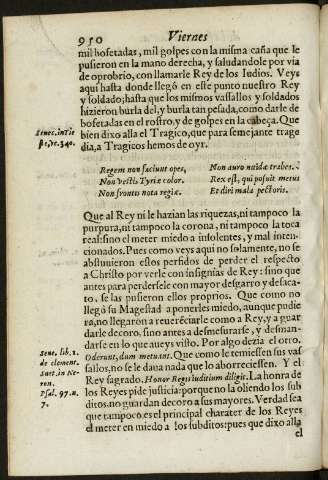 950 Viernes
mil bofetadas, mil golpes con la misma caña que le
pusieron en la mano derecha, y saludandole por via
de oprobrio, con llamarle Rey de los Iudios. Veys
aqui hasta donde llegò en este punto nuestro Rey
y soldado; hasta que los mismos vassallos y soldados
hizieron burla del, y burla tan pesada, como darle de
bofetadas en el rostro, y de golpes en la cabeça. Que
Senec. in Tie
bien dixo alla el Tragico, que para semejante trage
ste, re. 340.
dia, a Tragicos hemos de oyr.
Regem non faciunt opes,
Non vestis Tyriæ color.
Non frontes nota regiæ.
Non auro nitidæ trabes.
Rex est, qui posuit metus
Et diri mala pectoris.
Que al Rey ni le hazian las riquezas, ni tampoco la
purpura, ni tampoco la corona, ni tampoco la toca
real: sino el meter miedo a insolentes, y mal inten-
cionados. Pues como veys aqui no solamente, no se
abstuuieron estos perfidos de perder el respecto
a Christo por verle con insignias de Rey: sino que
antes para perdersele con mayor desgarro y desaca-
to, se las pusieron ellos proprios. Que como no
llegò su Magestad a ponerles miedo, aunque pudie
ra, no llegaron a reuerēciarle como a Rey, y a guar
darle decoro, sino antes a desmesurarse, y desman-
darse en lo que aueys visto. Por algo dezia el otro.
Sene. lib. 1.
Oderunt, dum metuant. Que como le temiessen sus vas
de clement.
sallos, no se le daua nada que lo aborreciessen. Y el
Suet. in Ne
Rey sagrado. Honor Regis iuditium diligit. La honra de
ron.
los Reyes pide justicia: porque no la oliendo los sub
Psal. 97. n.
ditos, no guardan decoro a sus mayores. Verdad sea
7.
que tampoco es el principal charater de los Reyes
el meter en miedo a los subditos: pues que dixo alla
el